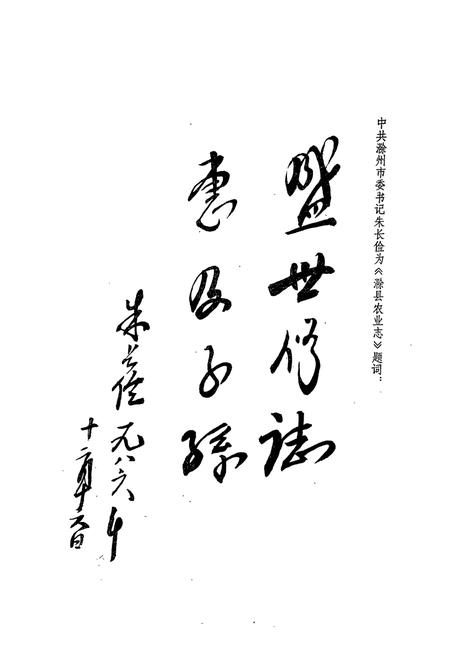 中共滁州市委书记朱长俭为《滁县农业志》题词：
盛世修誌
惠及子孙
朱长俭 一九八六年
十二月十六日